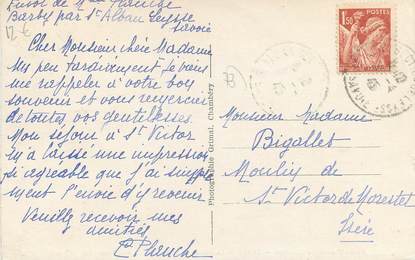 Envoi de Mme Planche
Barby par St Alban Leysse
Savoie
12 €
Cher Monsieur chère Madame
Un peu tardivement je viens
me rappeler à votre bon
souvenir et vous remercier
de toutes vos gentillesses.
Mon séjour à St Victor
m'a laissé une impression
si agréable que j'ai simple
ment l'envie d'y revenir
Veuillez recevoir mes
amitiés
C. Planche
Photographie Grimal, Chambéry
POSTES
1,50
SAVOIE
Monsieur Madame
Bigallet
Moulin de
St Victor de Morestel
Isère